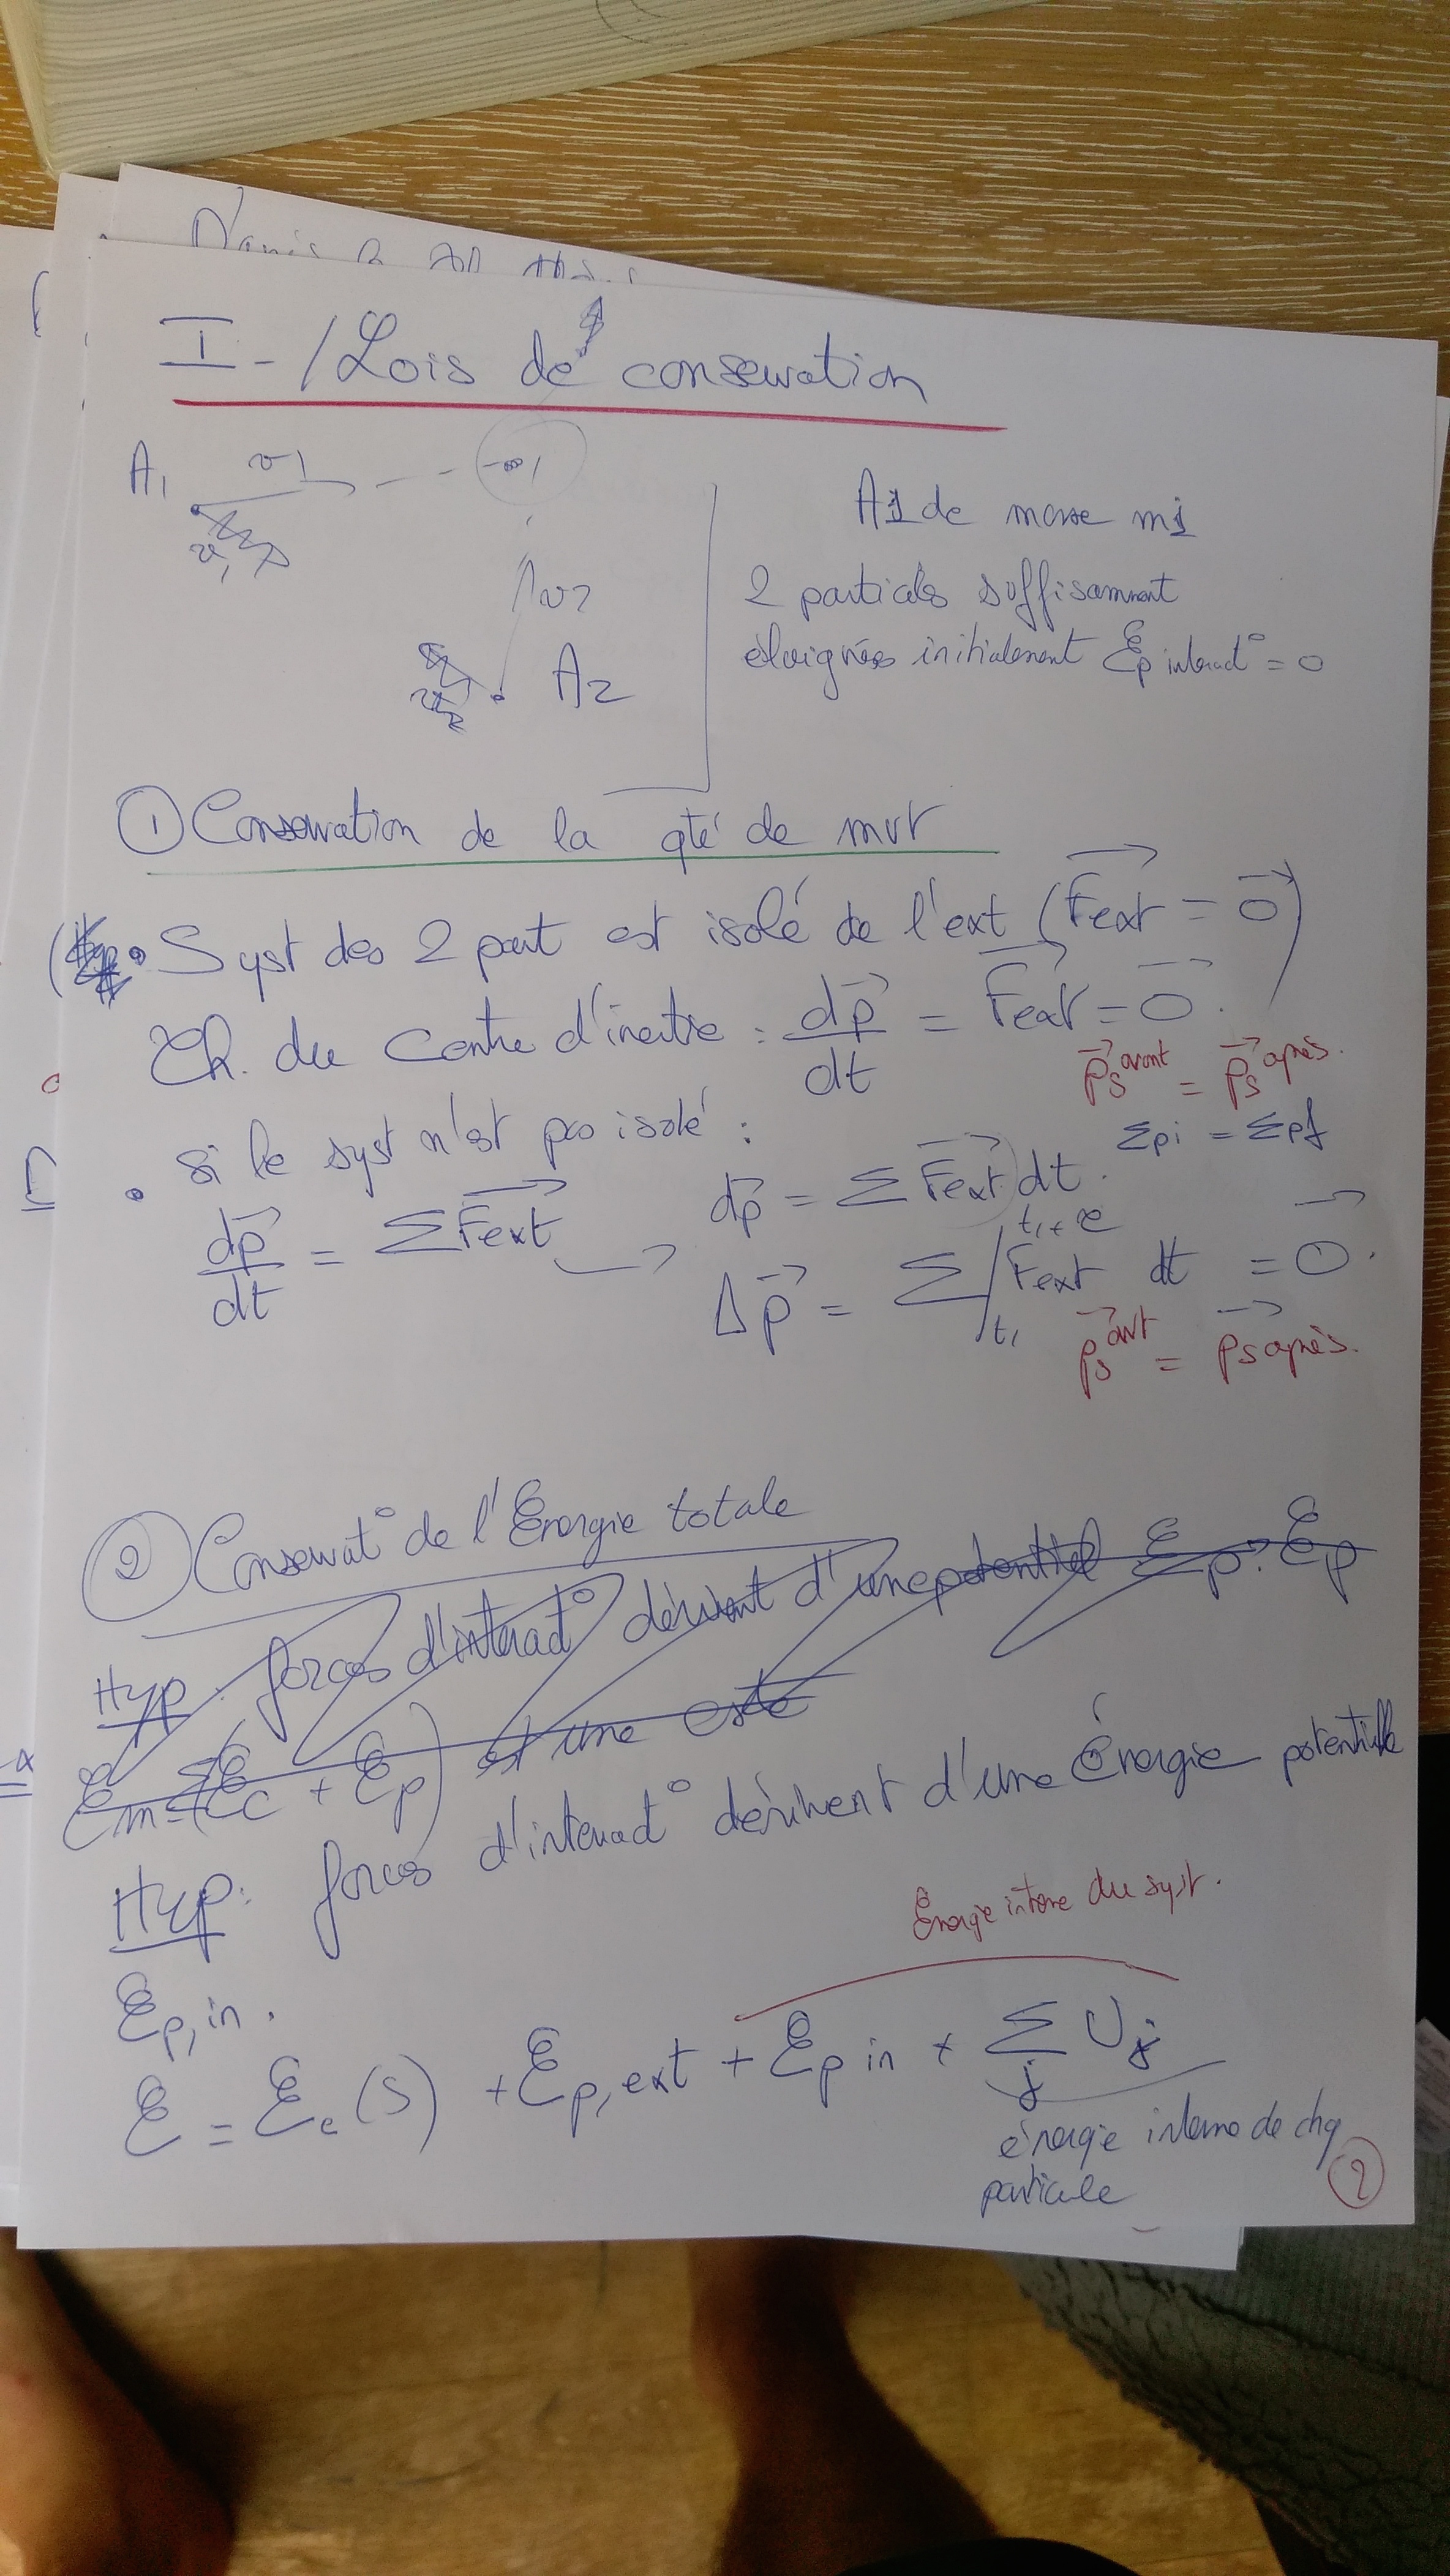 I-/Lois de conservation
A1 v1
v2
A2
A1 de masse m1
2 particules suffisamment
éloignées initialement Ep interact° = 0
① Conservation de la qté de mvt
• Syst des 2 part est isolé de l'ext (Fext = 0)
Th. du centre d'inertie : dp/dt = Fext = 0.
ps avant = ps après.
Σpi = Σpf
• si le syst n'est pas isolé :
dp/dt = ΣFext
dp = ΣFext dt.
Δp = Σ∫ Fext dt = 0.
t1
ps avt = ps après.
② Conservat° de l'Energie totale
Hyp : forces d'interact° dérivent d'une potentiel Ep. Ep
Em = (Ec + Ep) est une cste
Hyp : forces d'interact° dérivent d'une Énergie potentielle
Ep,in.
Energie interne du syst.
E = Ec(S) + Ep,ext + Ep in + Σj Uj
énergie interne de chq
particule
2